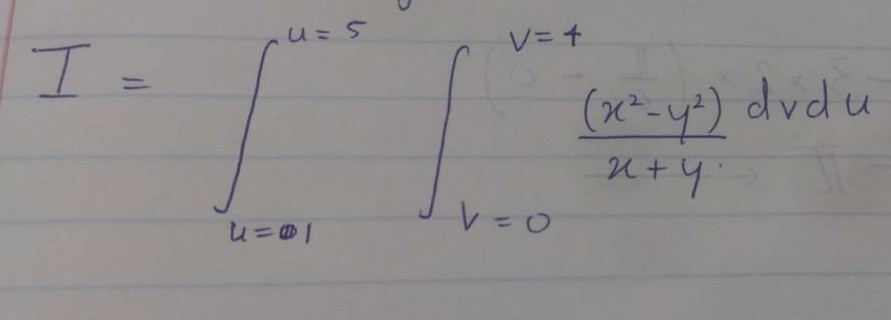 I = ∫_{u=1}^{u=5} ∫_{v=0}^{v=4} (x²-y²)/(x+y) dv du